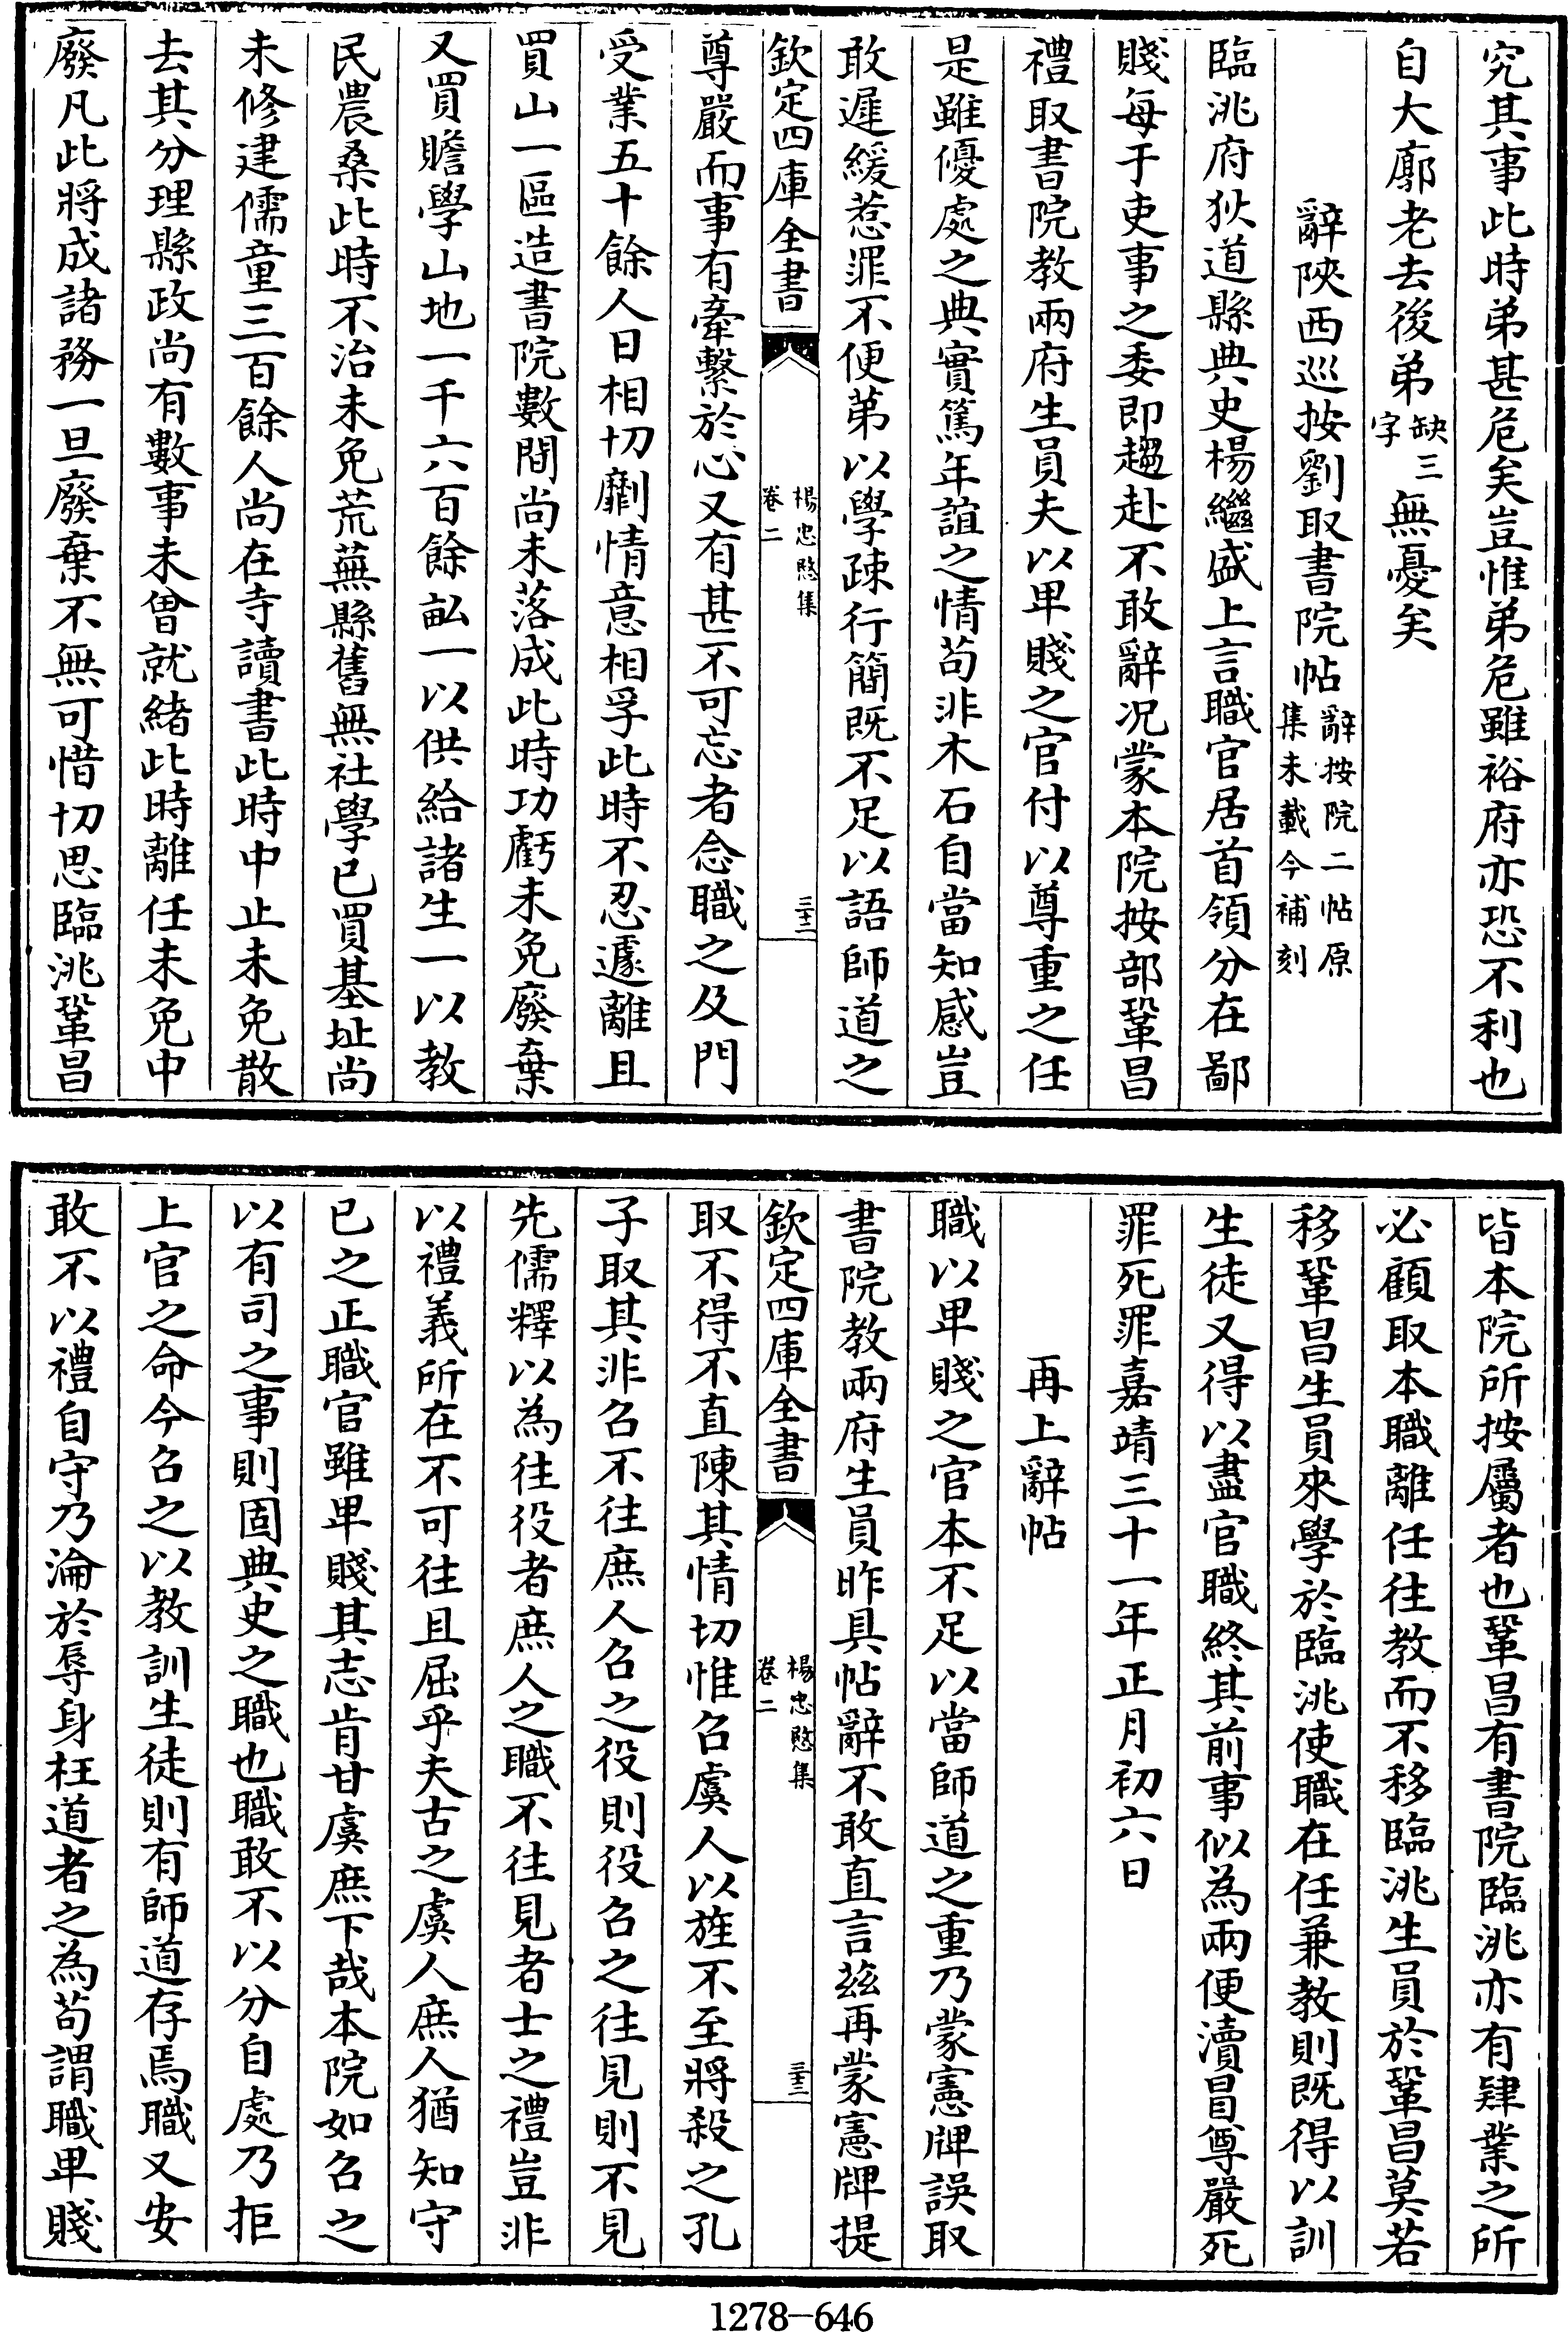 究其事此時弟甚危矣豈惟弟危雖裕府亦恐不利也
自大廓老去後弟缺三字無憂矣
辭陜西巡按劉取書院帖辭按院二帖原集未載今補刻
臨洮府狄道縣典史楊繼盛上言職官居首領分在鄙
賤每于吏事之委即趨赴不敢辭况蒙本院按部鞏昌
禮取書院教兩府生員夫以卑賤之官付以尊重之任
是雖優處之典實篤年誼之情苟非木石自當知感豈
敢遲緩惹罪不便苐以學疎行簡既不足以語師道之
欽定四庫全書
楊忠愍集
卷二
三十二
尊嚴而事有牽繫於心又有甚不可忘者念職之及門
受業五十餘人日相切劘情意相孚此時不忍遽離且
買山一區造書院數間尚未落成此時功虧未免廢棄
又買贍學山地一千六百餘畆一以供給諸生一以教
民農桑此時不治未免荒蕪縣舊無社學已買基址尚
未修建儒童三百餘人尚在寺讀書此時中止未免散
去其分理縣政尚有數事未曾就緒此時離任未免中
廢凡此將成諸務一旦廢棄不無可惜切思臨洮鞏昌
皆本院所按屬者也鞏昌有書院臨洮亦有肄業之所
必顧取本職離任往教而不移臨洮生員於鞏昌莫若
移鞏昌生員來學於臨洮使職在任兼教則既得以訓
生徒又得以盡官職終其前事似為兩便瀆冒尊嚴死
罪死罪嘉靖三十一年正月初六日
再上辭帖
職以卑賤之官本不足以當師道之重乃蒙憲牌誤取
書院教兩府生員昨具帖辭不敢直言茲再蒙憲牌提
欽定四庫全書
楊忠愍集
卷二
三十三
取不得不直陳其情切惟召虞人以旌不至將殺之孔
子取其非召不往庶人召之役則役召之往見則不見
先儒釋以為往役者庶人之職不往見者士之禮豈非
以禮義所在不可往且屈乎夫古之虞人庶人猶知守
已之正職官雖卑賤其志肯甘虞庶下哉本院如召之
以有司之事則固典史之職也職敢不以分自處乃拒
上官之命今召之以教訓生徒則有師道存焉職又安
敢不以禮自守乃淪於辱身枉道者之為苟謂職卑賤
1278—646